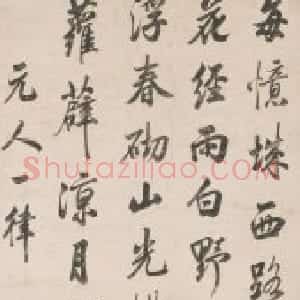 每憶城西路
花經雨白野
浮春砌山光
蘿薜涼月
元人一律
Shufaziliao.com